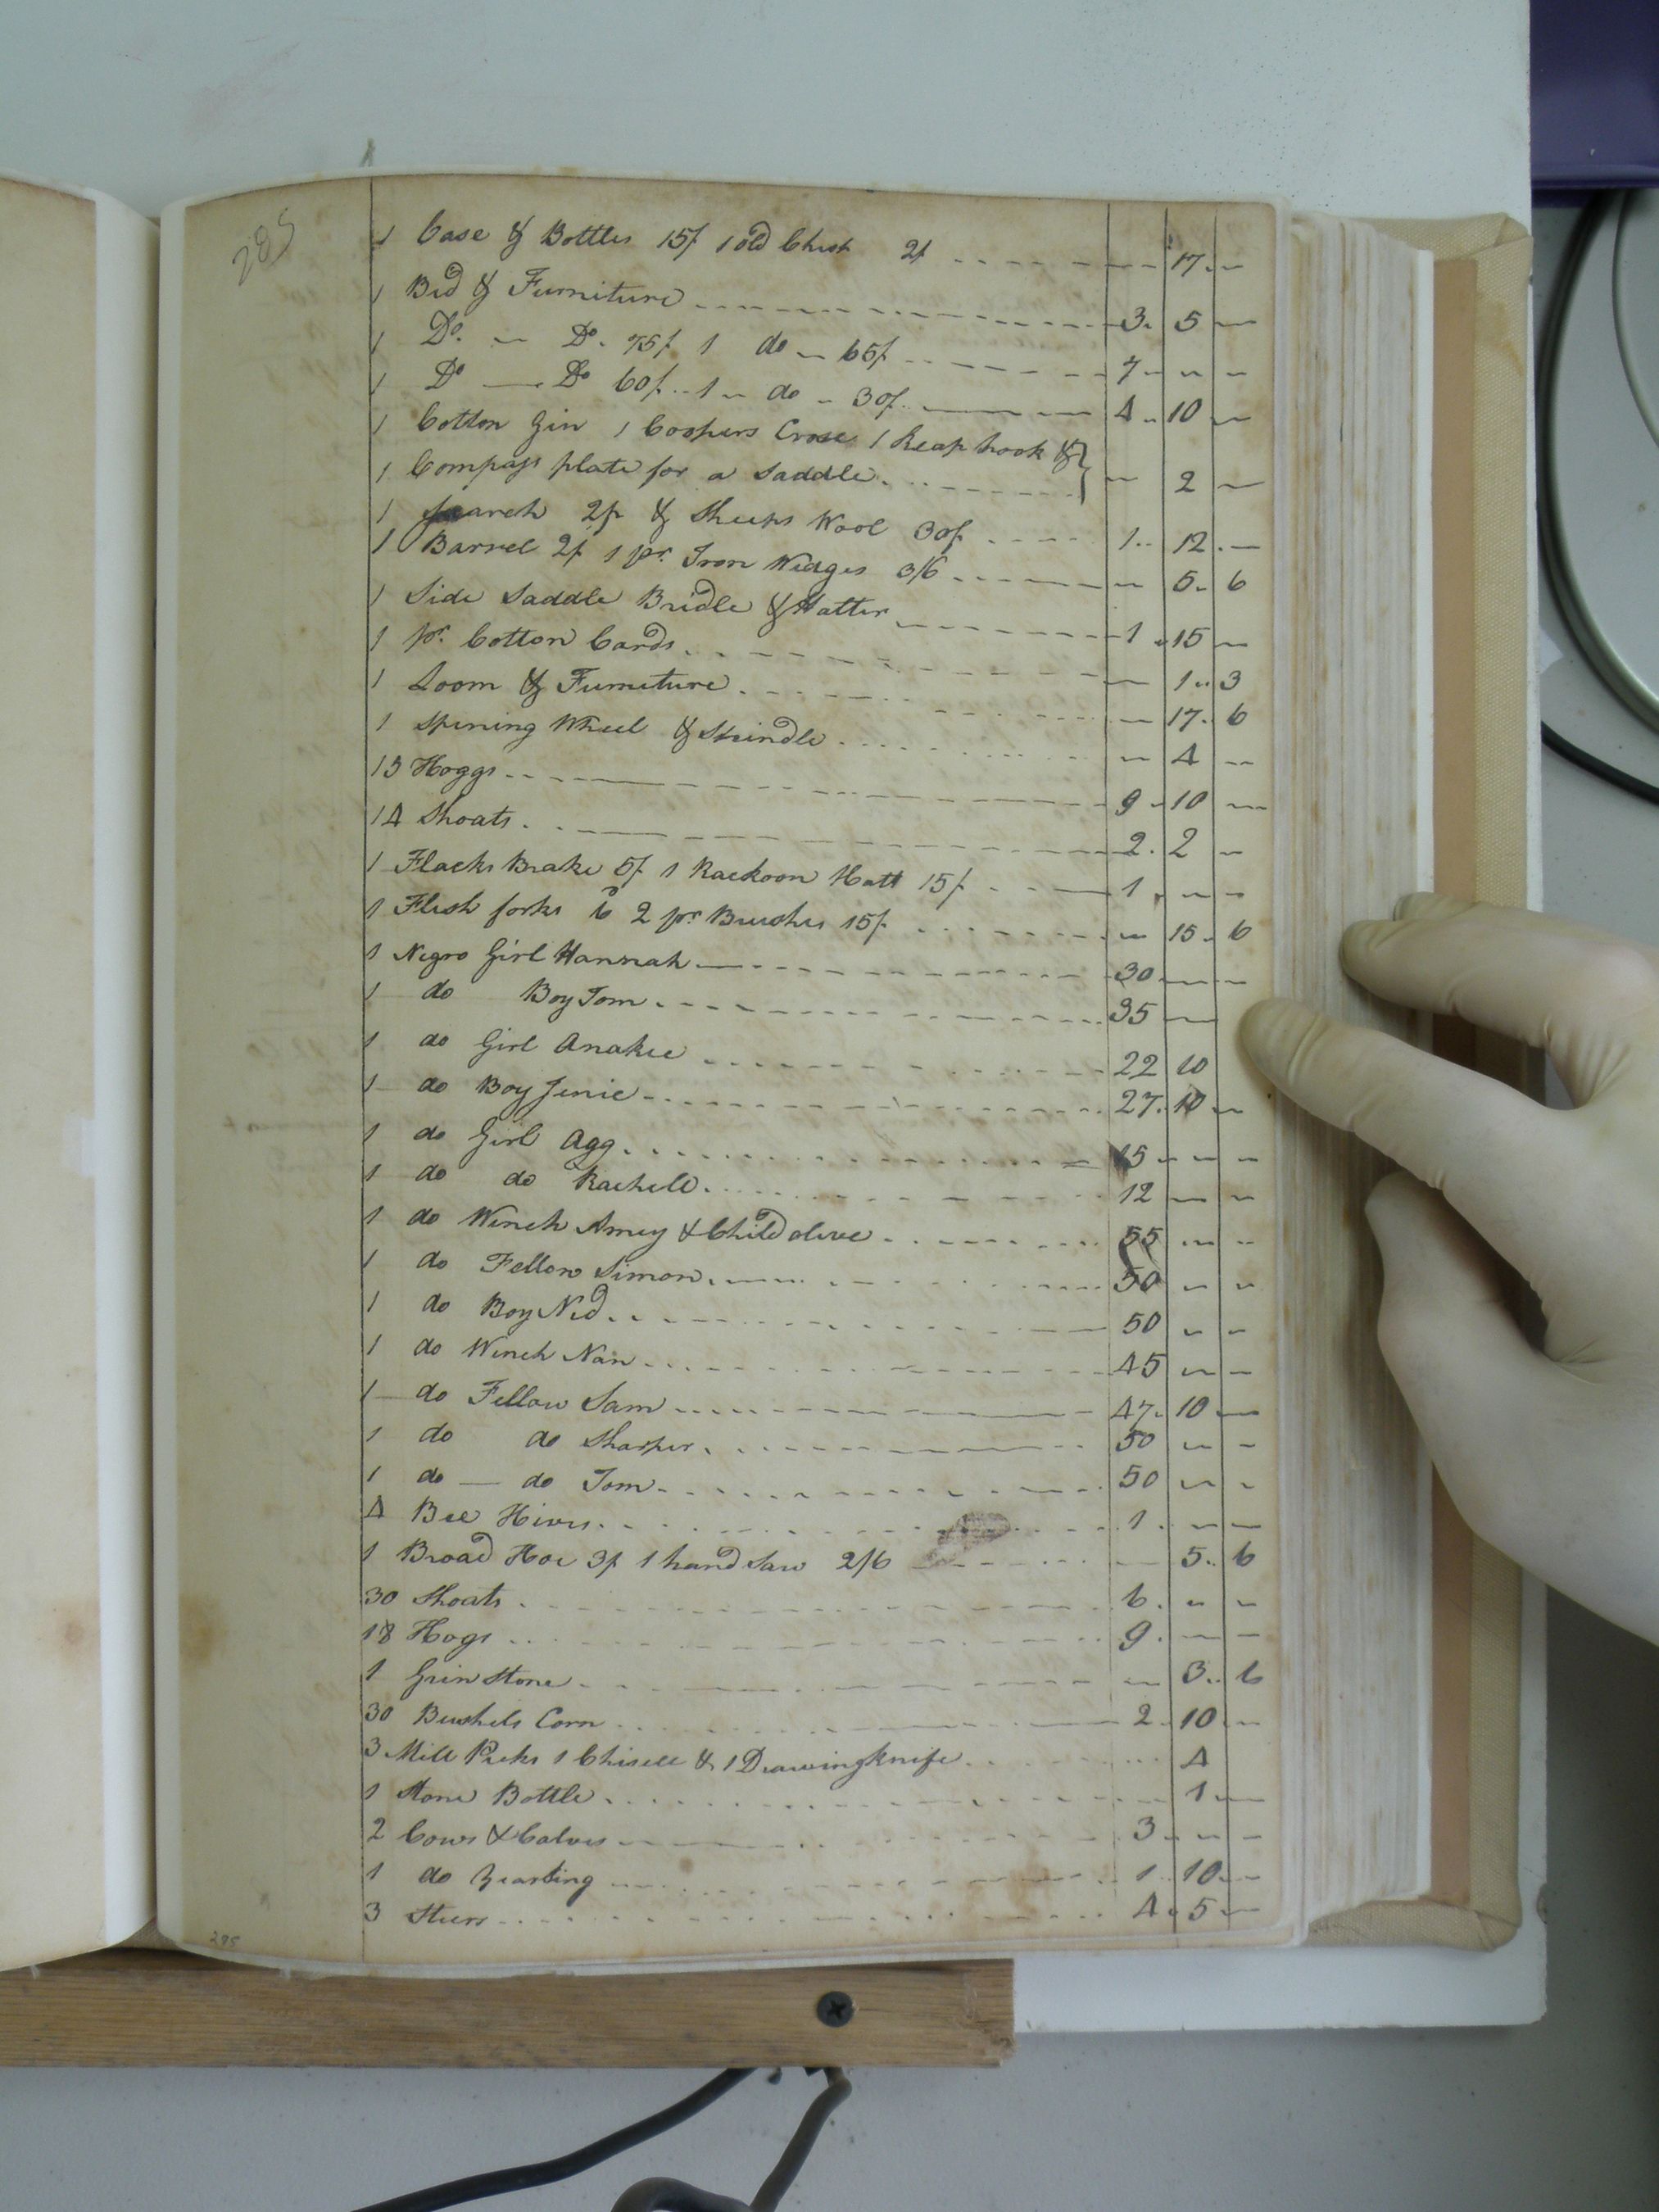 285
1 Case & Bottles 15/ 1 old Chest 2/ - - - - - - - 17 - -
1 Bed & Furniture - - - - - - - 3 - 5 -
1 Do. - Do. 75/ 1 do - 65/ - - - - - 7 - - -
1 Do - Do 60/ - 1 - do - 30/ - - - - 4 - 10 -
1 Cotton Gin 1 Coopers Croze 1 Reap hook & }
1 Compass plate for a Saddle - - - - } - 2 -
1 Search 2/ & Sheeps Wool 30/ - - - - 1 - 12 -
1 Barrel 2/ 1 pr. Iron Wedges 3/6 - - - - - 5 - 6
1 Side Saddle Bridle & Halter - - - - 1 - 15 -
1 pr. Cotton Cards - - - - - 1 - 3
1 Loom & Furniture - - - - - 17 - 6
1 Spining Wheel & Spindle - - - - - 4 -
13 Hoggs - - - - 9 - 10 -
14 Shoats - - - - 2 - 2 -
1 Flacks Brake 5/ 1 Rackoon Hatt 15/ - - - 1 - - -
1 Flesh forks 6d 2 pr Brushes 15/ - - - - - 15 - 6
1 Negro Girl Hannah - - - - 30 - - -
1 do Boy Tom - - - - 35 -
1 do Girl Anakee - - - - 22 10
1 do Boy Jenie - - - - 27 - 10 -
1 do Girl Agg - - - - 15 - - -
1 do do Rachell - - - - 12 - -
1 do Wench Amey & Child olive - - - - 55 - -
1 do Fellow Simon - - - - 50 - -
1 do Boy Ned - - - - 50 - -
1 do Wench Nan - - - - 45 - -
1 do Fellow Sam - - - - 47 - 10 -
1 do do Sharper - - - - 50 - -
1 do - do Tom - - - - 50 - -
4 Bee Hives - - - - 1 - - -
1 Broad Hoe 3/ 1 hand Saw 2/6 - - - - - 5 - 6
30 Shoats - - - - 6 - - -
18 Hogs - - - - 9 - - -
1 Grin Stone - - - - - 3 - 6
30 Bushels Corn - - - - 2 - 10 -
3 Mill Picks 1 Chisell & 1 Drawing knife - - - - 4
1 Stone Bottle - - - - - 1 -
2 Cows & Calves - - - - 3 - - -
1 do Yearling - - - - 1 - 10 -
3 Steers - - - - 4 - 5 -
285